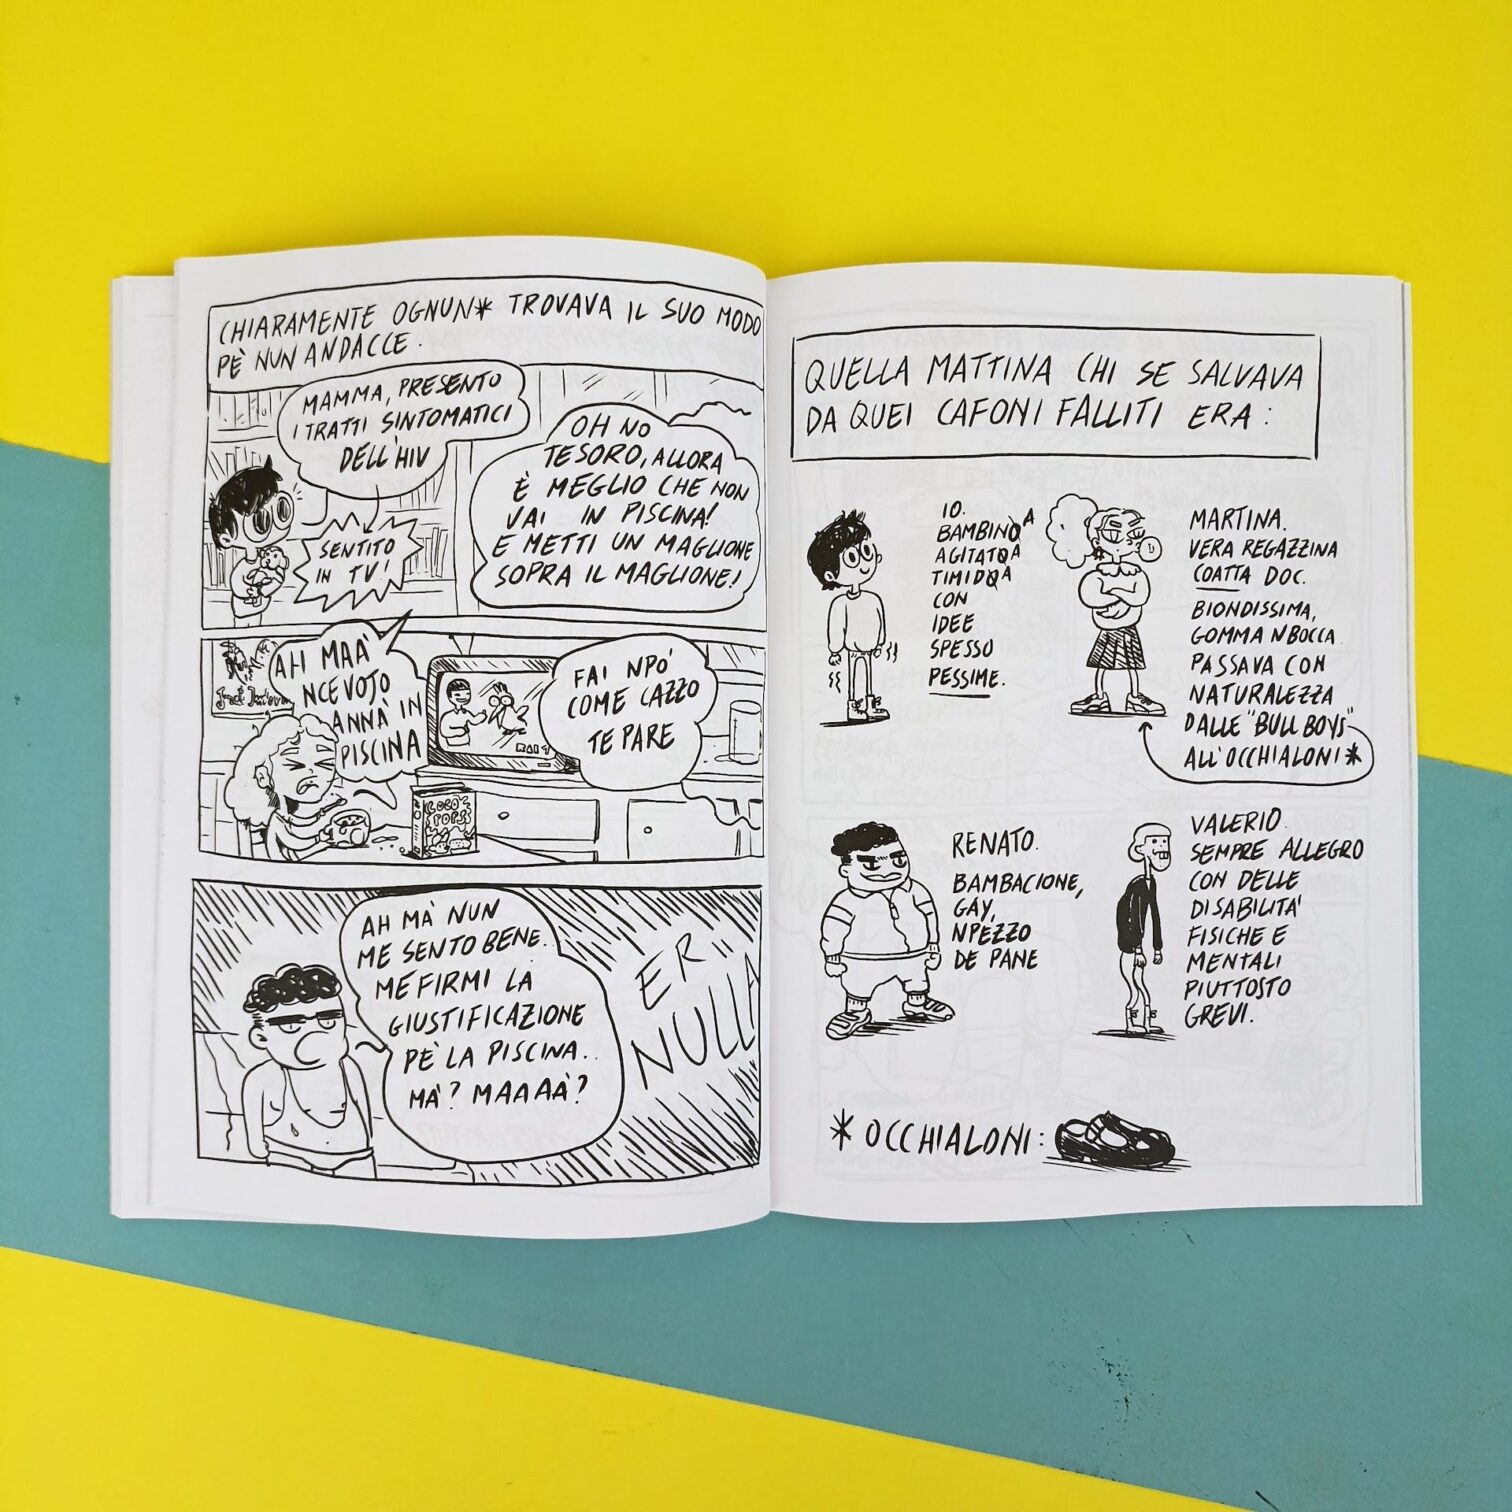 CHIARAMENTE OGNUN* TROVAVA IL SUO MODO
PÈ NUN ANDACCE.
MAMMA, PRESENTO
I TRATTI SINTOMATICI
DELL'HIV
SENTITO
IN TV!
OH NO
TESORO, ALLORA
È MEGLIO CHE NON
VAI IN PISCINA!
E METTI UN MAGLIONE
SOPRA IL MAGLIONE!
AH MAA'
NCEVOJO
ANNÀ IN
PISCINA
FAI NPÒ
COME CAZZO
TE PARE
COCO
POPS
AH MÀ NUN
ME SENTO BENE.
ME FIRMI LA
GIUSTIFICAZIONE
PÈ LA PISCINA..
MÀ? MAAAÀ?
ER
NULLA
QUELLA MATTINA CHI SE SALVAVA
DA QUEI CAFONI FALLITI ERA:
IO.
BAMBINOA
AGITATOA
TIMIDOA
CON
IDEE
SPESSO
PESSIME.
MARTINA.
VERA REGAZZINA
COATTA DOC.
BIONDISSIMA,
GOMMA NBOCCA.
PASSAVA CON
NATURALEZZA
DALLE "BULL BOYS"
ALL'OCCHIALONI*
RENATO.
BAMBACIONE,
GAY,
NPEZZO
DE PANE
VALERIO.
SEMPRE ALLEGRO
CON DELLE
DISABILITA'
FISICHE E
MENTALI
PIUTTOSTO
GREVI.
* OCCHIALONI: